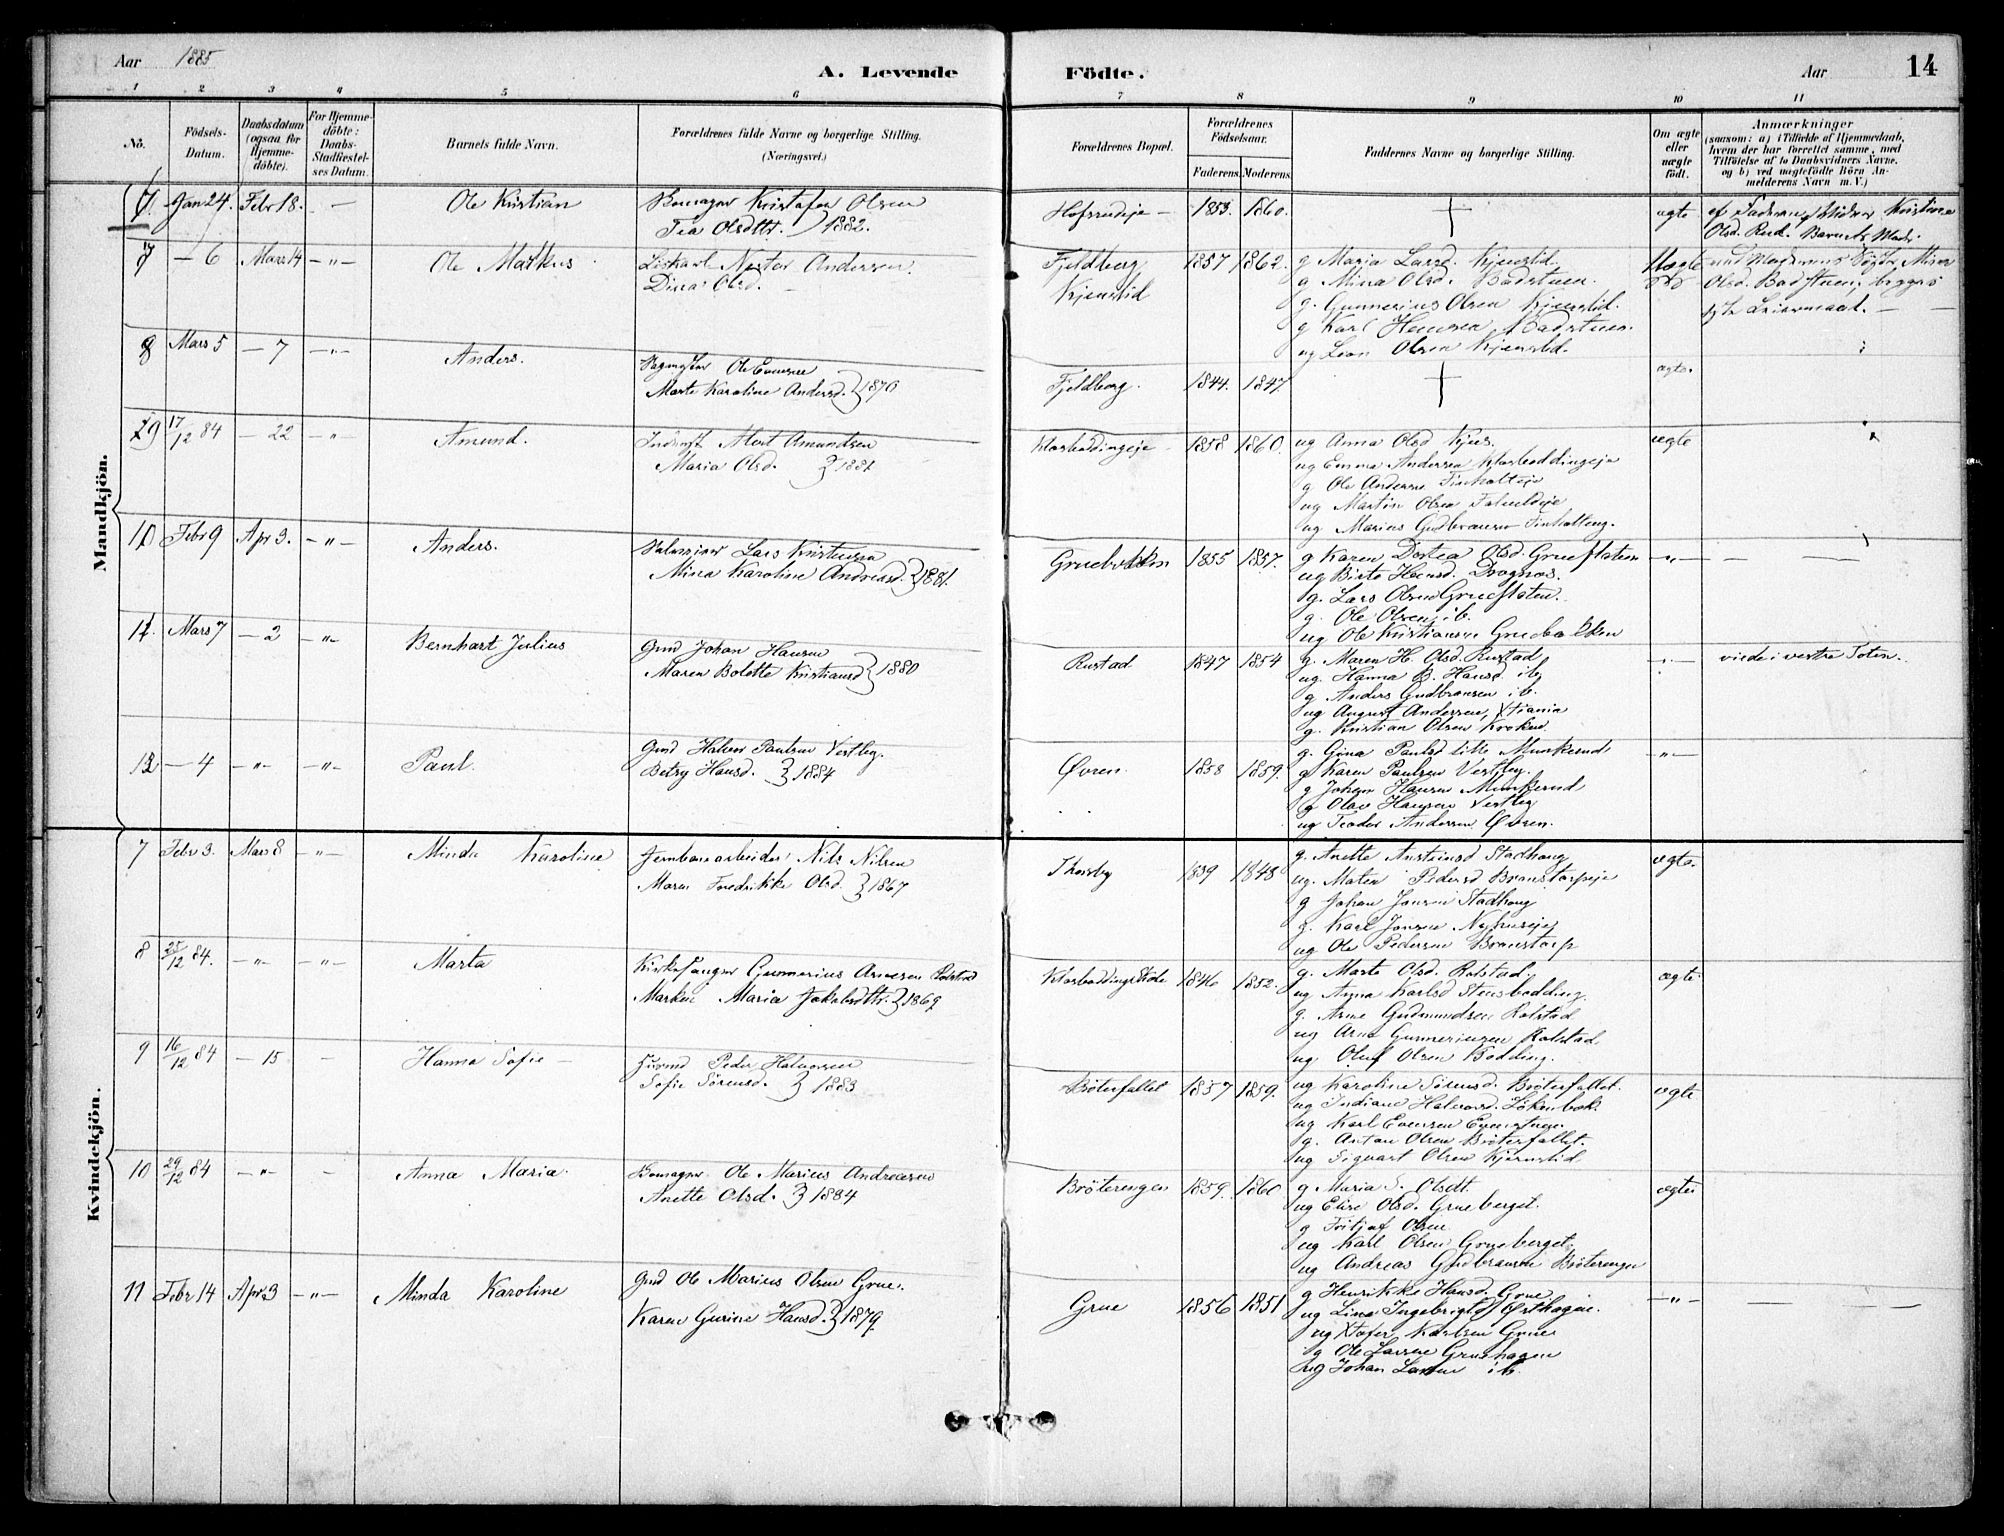 Aar 1885
A. Levende Födte.
Aar
14
1 2 3 4 5 6 7 8 9 10 11
No.
Födsels-Datum.
Daabsdatum (ogsaa for Hjemmedöbte).
For Hjemmedöbte: Daabs-Stadfæstelses Datum.
Barnets fulde Navn.
Forældrenes fulde Navne og borgerlige Stilling. (Næringsvei.)
Forældrenes Bopæl.
Forældrenes Födselsaar.
Faderens. Moderens.
Faddernes Navne og borgerlige Stilling.
Om ægte eller uægte födt.
Anmærkninger
(saasom: a) i Tilfælde af Hjemmedaab, hvem der har forrettet samme, med Tilföielse af to Daabsvidners Navne. og b) ved uægtefödte Börn Anmelderens Navn m. V.)
Mandkjön.
Jan 24. Febr 18. — Ole Kristian
Kristafer Olsen
Tea Olsdtr. } 1882.
1853. 1860. † ægte
Olsd. Rud. Barnets
7 — 6 Mars 14 — " — Ole Markus
Andersen
Dina Olsd. —
Fjeldberg
Kjenstid
1857 1862. g Maria Kjenstid
g Mina Olsd. Badstuen.
g. Gunnerius Olsen Kjenstid.
g Karl Hansen Badstuen.
ug Leon Olsen Kjenstid.
Uægte
Olsd. Badstuen, begges
8 Mars 5 — 7 — " — Anders.
Ole Evensen
Marte Karoline Andersd. } 1870
Fjeldberg. 1844. 1847 † ægte.
9 17/12 84 — 22 — " Amund.
Amundsen
Maria Olsd. } 1881
1858 1860. ug Anna Olsd Kjus.
ug Emma Andersen
g Ole Andersen
ug Martin Olsen
ug Marius Gudbransen
ægte
10 Febr 9 Apr 3. — " — Anders.
Lars Kristensen
Mina Karoline Andreasd. } 1881.
Gruebakken 1855 1857. g Karen Dortea Olsd. Grueflaten
ug Birte Hansd. Dragnas.
g. Lars Olsen Grueflaten.
g. Ole Olsen ib.
ug Ole Kristiansen Gruebakken
— " — — —
11 Mars 7 — 2 — " Bernhart Julius
Gmd Johan Hansen
Maren Bolette Kristiansd } 1880
Rustad 1847 1854 g. Maren H. Olsd. Rustad
ug. Hanna B. Hansd ib
g Anders Gudbransen ib.
ug August Andersen, Xtiania
g. Kristian Olsen Kroken
— " — viede i vestre Toten.
12 — 4 — " — — " — Paul.
Gmd Halvor Paulsen Vestby.
Betsy Hansd. } 1884
Øvren. 1858 1859. g. Gina Paulsd lille Munkerud
g Karen Paulsen Vestby.
g Johan Hansen Munkerud
g Olav Hansen Vestby
ug Teodor Andersen Øvren.
— " —
Kvindekjön.
7 Febr 3. Mars 8 — " — Minda Karoline
Jernbanearbeider Nils Nilsen
Maren Fredrikke Olsd. } 1867
Thorsby 1839 1848 g. Anette Stadhaug
ug. Maten Pedersd
g Johan Jansen Stadhaug
g. Karl Jansen
ug Ole Pedersen Branstorp
ægte.
8 25/12 84. — " — — " — Marta
Kirkesanger Gunnerius Arnesen Rolstad
Maria Jakobsdtr. } 1869
1846 1852. g. Marte Olsd. Rolstad.
ug Anna Karlsd Stensbodding.
g. Arne Gudmundsen Rolstad
ug Arne Gunneriusen Rolstad
ug Oluf Olsen Bodding.
ægte
9 16/12 84 — 15 — Hanna Sofie —
Peder Halvorsen
Sofie Sörensd. } 1883
Böterfallet 1857 1859. ug Karoline Sörensd. Bröterfallet.
ug Indiane Halvorsd.
ug Karl Evensen
g. Anton Olsen Bröterfallet.
ug Sigvart Olsen Kjernstid
ægte
10 29/12 84 — " — — Anna Maria.
Ole Marius Andreasen
Anette Olsd. } 1884
Bröterengen 1859. 1860 g Maria S. Olsdt.
ug Elise Olsd. Grueberget.
g Fritjof Olsen
ug Karl Olsen Grueberget.
ug Andreas Gudbransen Bröterengen
ægte
11 Febr 14 Apr 3 — " — Minda Karoline
Gmd Ole Marius Olsen Grue.
Karen Gurine Hansd. } 1879.
Grue 1856 1851 g Henrikke Hansd. Grue
ug Lina Ingebrigtsd Østhagen.
ug Xtofer Karlsen Grue
g Ole Larsen Gruehagen
ug Johan Larsen ib.
— " — — —